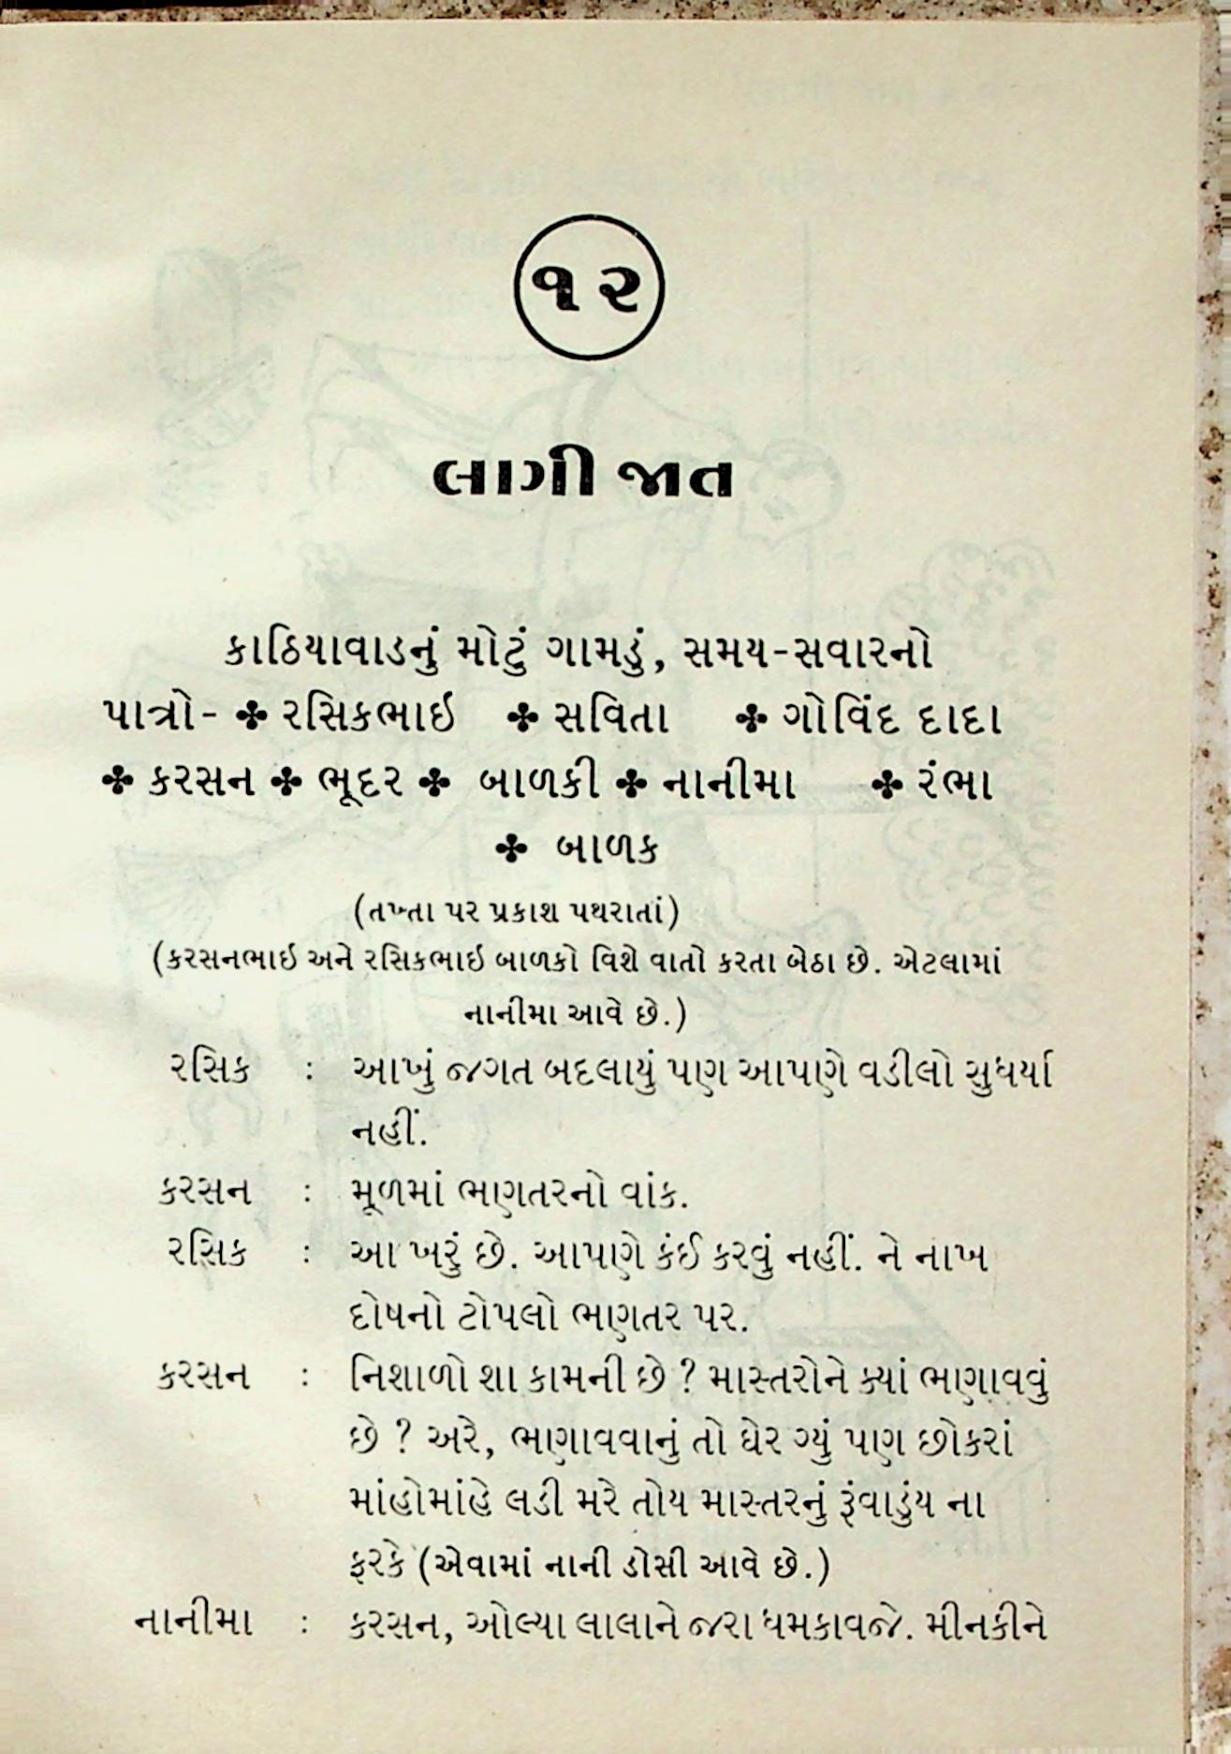 ૧૨
લાગી જાત
કાઠિયાવાડનું મોટું ગામડું, સમય-સવારનો
પાત્રો- ✤ રસિકભાઇ ✤ સવિતા ✤ ગોવિંદ દાદા
✤ કરસન ✤ ભૂદર ✤ બાળકી ✤ નાનીમા ✤ રંભા
✤ બાળક
(તખ્તા પર પ્રકાશ પથરાતાં)
(કરસનભાઇ અને રસિકભાઇ બાળકો વિશે વાતો કરતા બેઠા છે. એટલામાં
નાનીમા આવે છે.)
રસિક : આખું જગત બદલાયું પણ આપણે વડીલો સુધર્યા
નહીં.
કરસન : મૂળમાં ભણતરનો વાંક.
રસિક : આ ખરું છે. આપણે કંઈ કરવું નહીં. ને નાખ
દોષનો ટોપલો ભણતર પર.
કરસન : નિશાળો શા કામની છે ? માસ્તરોને ક્યાં ભણાવવું
છે ? અરે, ભણાવવાનું તો ઘેર ગ્યું પણ છોકરાં
માંહોમાંહે લડી મરે તોય માસ્તરનું રૂંવાડુંય ના
ફરકે (એવામાં નાની ડોસી આવે છે.)
નાનીમા : કરસન, ઓલ્યા લાલાને જરા ધમકાવજે. મીનકીને